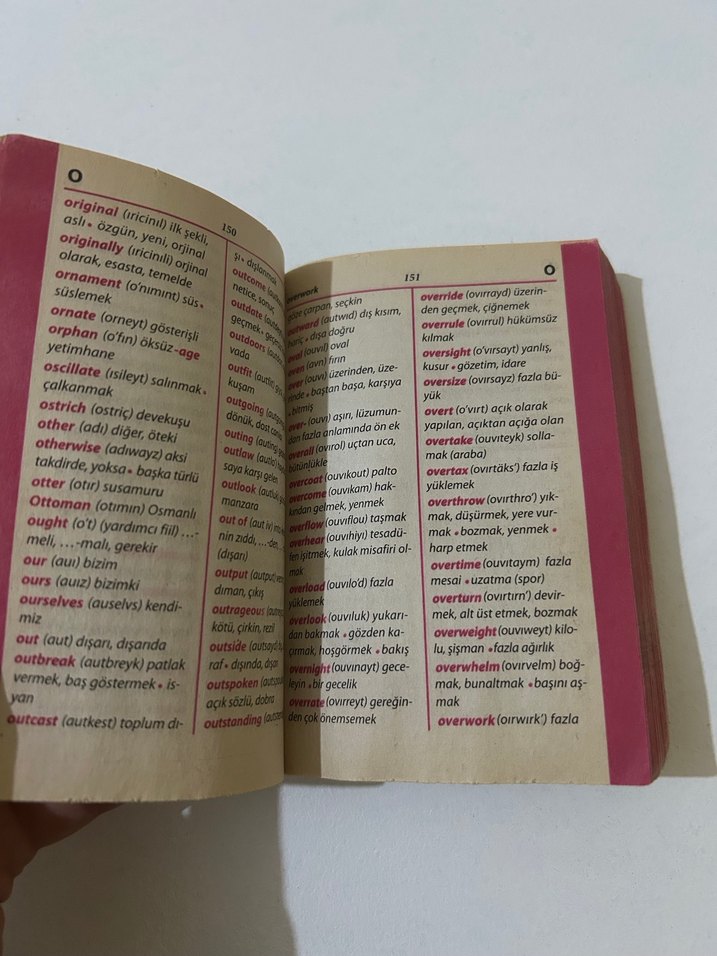 O
150
original (ıricinıl) ilk şekli,
aslı • özgün, yeni, orjinal
originally (ıricinıli) orjinal
olarak, esasta, temelde
ornament (o'nımınt) süs •
süslemek
ornate (orneyt) gösterişli
orphan (o'fın) öksüz -age
yetimhane
oscillate (ısileyt) salınmak •
çalkanmak
ostrich (ostriç) devekuşu
other (adı) diğer, öteki
otherwise (adıwayz) aksi
takdirde, yoksa • başka türlü
otter (otır) susamuru
Ottoman (otımın) Osmanlı
ought (o't) (yardımcı fiil) ...-
meli, ...-malı, gerekir
our (auı) bizim
ours (auız) bizimki
ourselves (auselvs) kendi-
miz
out (aut) dışarı, dışarıda
outbreak (autbreyk) patlak
vermek, baş göstermek • is-
yan
outcast (autkest) toplum dı-
şı • dışlanmak
outcome
netice, sonuç
outdate
geçmek •
outdoors
vada
outfit
kuşam
outgoing
dönük, dost
outing
outlaw
saya karşı gelen
outlook
manzara
out of (aut iv)
nin zıddı, ...-den
(dışarı)
output (autput)
dıman, çıkış
outrageous
kötü, çirkin, rezil
outside
raf • dışında, dışarı
outspoken
açık sözlü, dobra
outstanding
overwork
151
O
göze çarpan, seçkin
outward (autwıd) dış kısım,
hariç • dışa doğru
oval (ouvıl) oval
oven (avn) fırın
over (ouvı) üzerinden, üze-
rinde • baştan başa, karşıya
• bitmiş
over- (ouvı) aşırı, lüzumun-
dan fazla anlamında ön ek
overall (ovırol) uçtan uca,
bütünlükle
overcoat (ouvıkout) palto
overcome (ouvıkam) hak-
kından gelmek, yenmek
overflow (ouvıflou) taşmak
overhear (ouvıhiyı) tesadü-
fen işitmek, kulak misafiri ol-
mak
overload (ouvılo'd) fazla
yüklemek
overlook (ouvıluk) yukarı-
dan bakmak • gözden ka-
çırmak, hoşgörmek • bakış
overnight (ouvınayt) gece-
leyin • bir gecelik
overrate (ovırreyt) gereğin-
den çok önemsemek
override (ovırrayd) üzerin-
den geçmek, çiğnemek
overrule (ovırrul) hükümsüz
kılmak
oversight (o'vırsayt) yanlış,
kusur • gözetim, idare
oversize (ovırsayz) fazla bü-
yük
overt (o'vırt) açık olarak
yapılan, açıktan açığa olan
overtake (ouvıteyk) solla-
mak (araba)
overtax (ovırtäks') fazla iş
yüklemek
overthrow (ovırthro') yık-
mak, düşürmek, yere vur-
mak • bozmak, yenmek •
harp etmek
overtime (ouvıtaym) fazla
mesai • uzatma (spor)
overturn (ovırtırn') devir-
mek, alt üst etmek, bozmak
overweight (ouvıweyt) kilo-
lu, şişman • fazla ağırlık
overwhelm (ovırvelm) boğ-
mak, bunaltmak • başını aş-
mak
overwork (oıırwırk') fazla